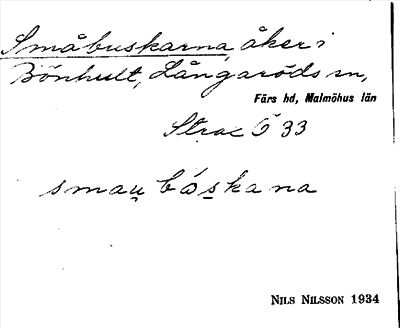 Småbuskarna, åker i
Bönhult, Långaröds sn,
Färs hd, Malmöhus län
Strax Ö 33
Nils Nilsson 1934